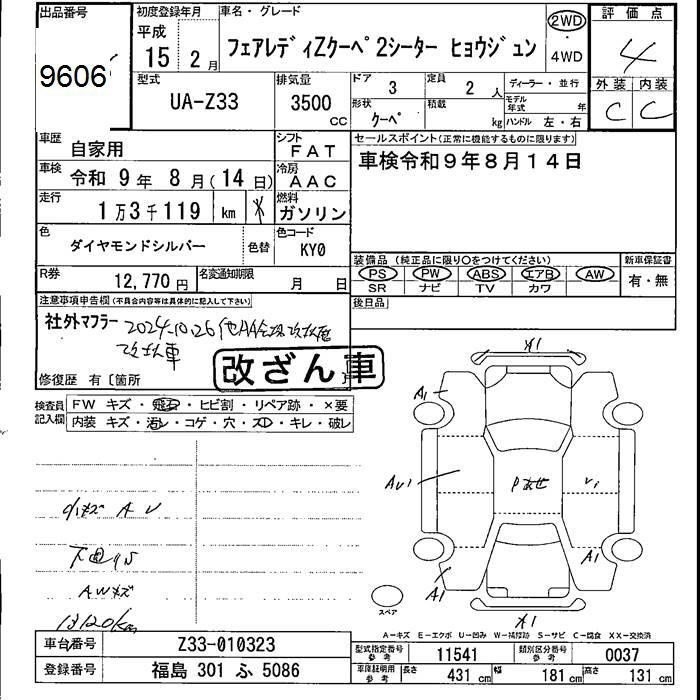 出品番号
9606
初度登録年月
平成
15年 2月
車名・グレード
フェアレディZクーペ 2シーター ヒョウジュン
2WD
・
4WD
評価点
4
外装 内装
C C
型式
UA-Z33
排気量
3500
CC
ドア 3
定員 2 人
ディーラー・並行
形状 クーペ
積載 kg
モデル年式 年
ハンドル 左・右
車歴
自家用
シフト
FAT
セールスポイント(正常に機能するものに限ります)
車検令和9年8月14日
車検
令和 9年 8月(14日)
冷房
AAC
走行
1万3千119 km
燃料
ガソリン
色
ダイヤモンドシルバー
色替
色コード
KY0
装備品 (純正品に限り○をつけてください)
新車保証書
PS PW ABS エアB AW
有・無
SR ナビ TV カワ
R券
12,770円
名変通知期限
月 日
後日品
注意事項申告欄(不具合内容等は具体的に記入して下さい)
社外マフラー 2024.10.26
改ざん車
修復歴 有〔箇所 〕
検査員記入欄
FW キズ・飛石・ヒビ割・リペア跡・×要
内装 キズ・汚レ・コゲ・穴・スレ・キレ・破レ
A U
下回りS
AWキズ
13120km
A1
AU1
A1
A1
スペア
A-キズ E-エクボ U-凹み W-補修跡 S-サビ C-腐食 XX-交換済
車台番号
Z33-010323
登録番号
福島 301 ふ 5086
型式指定番号
参考
11541
類別区分番号
参考
0037
車庫証明用
参考
長さ 431 cm
幅 181 cm
高さ 131 cm